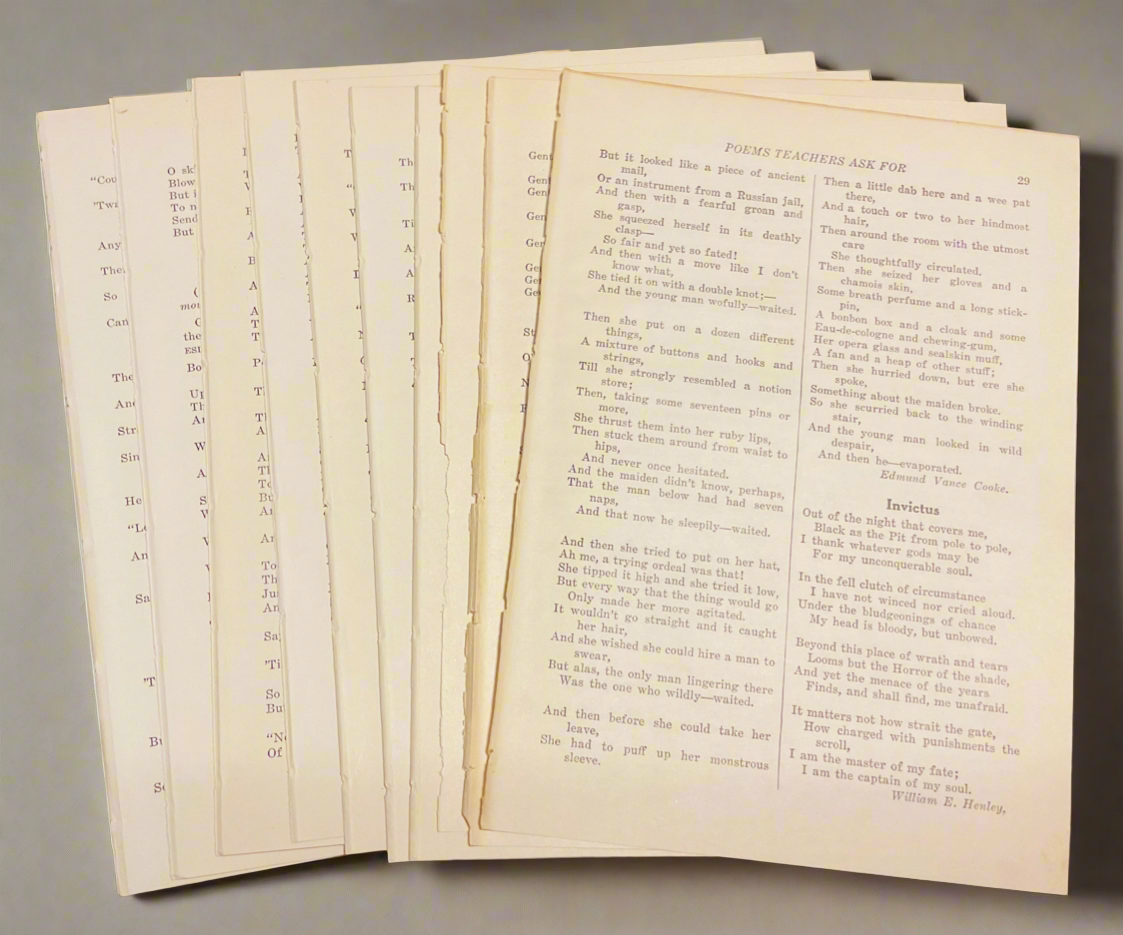 "Cou
Any
So
Can
And
Str
Sin
He
An
Sa
O sk
Blow
But i
To n
Send
But
the
Bo
Sa
'Ti
So
Bu
Of
Th
Th
Ti
Gent
Gen
Gen
Gen
Ger
St
POEMS TEACHERS ASK FOR
29
But it looked like a piece of ancient
mail,
Or an instrument from a Russian jail,
And then with a fearful groan and
gasp,
She squeezed herself in its deathly
clasp—
So fair and yet so fated!
And then with a move like I don't
know what,
She tied it on with a double knot;—
And the young man wofully—waited.
Then she put on a dozen different
things,
A mixture of buttons and hooks and
strings,
Till she strongly resembled a notion
store;
Then, taking some seventeen pins or
more,
She thrust them into her ruby lips,
Then stuck them around from waist to
hips,
And never once hesitated.
And the maiden didn't know, perhaps,
That the man below had had seven
naps,
And that now he sleepily—waited.
And then she tried to put on her hat,
Ah me, a trying ordeal was that!
She tipped it high and she tried it low,
But every way that the thing would go
Only made her more agitated.
It wouldn't go straight and it caught
her hair,
And she wished she could hire a man to
swear,
But alas, the only man lingering there
Was the one who wildly—waited.
And then before she could take her
leave,
She had to puff up her monstrous
sleeve.
Then a little dab here and a wee pat
there,
And a touch or two to her hindmost
hair,
Then around the room with the utmost
care
She thoughtfully circulated.
Then she seized her gloves and a
chamois skin,
Some breath perfume and a long stick-
pin,
A bonbon box and a cloak and some
Eau-de-cologne and chewing-gum,
Her opera glass and sealskin muff,
A fan and a heap of other stuff;
Then she hurried down, but ere she
spoke,
Something about the maiden broke.
So she scurried back to the winding
stair,
And the young man looked in wild
despair,
And then he—evaporated.
Edmund Vance Cooke.
Invictus
Out of the night that covers me,
Black as the Pit from pole to pole,
I thank whatever gods may be
For my unconquerable soul.
In the fell clutch of circumstance
I have not winced nor cried aloud.
Under the bludgeonings of chance
My head is bloody, but unbowed.
Beyond this place of wrath and tears
Looms but the Horror of the shade,
And yet the menace of the years
Finds, and shall find, me unafraid.
It matters not how strait the gate,
How charged with punishments the
scroll,
I am the master of my fate;
I am the captain of my soul.
William E. Henley,